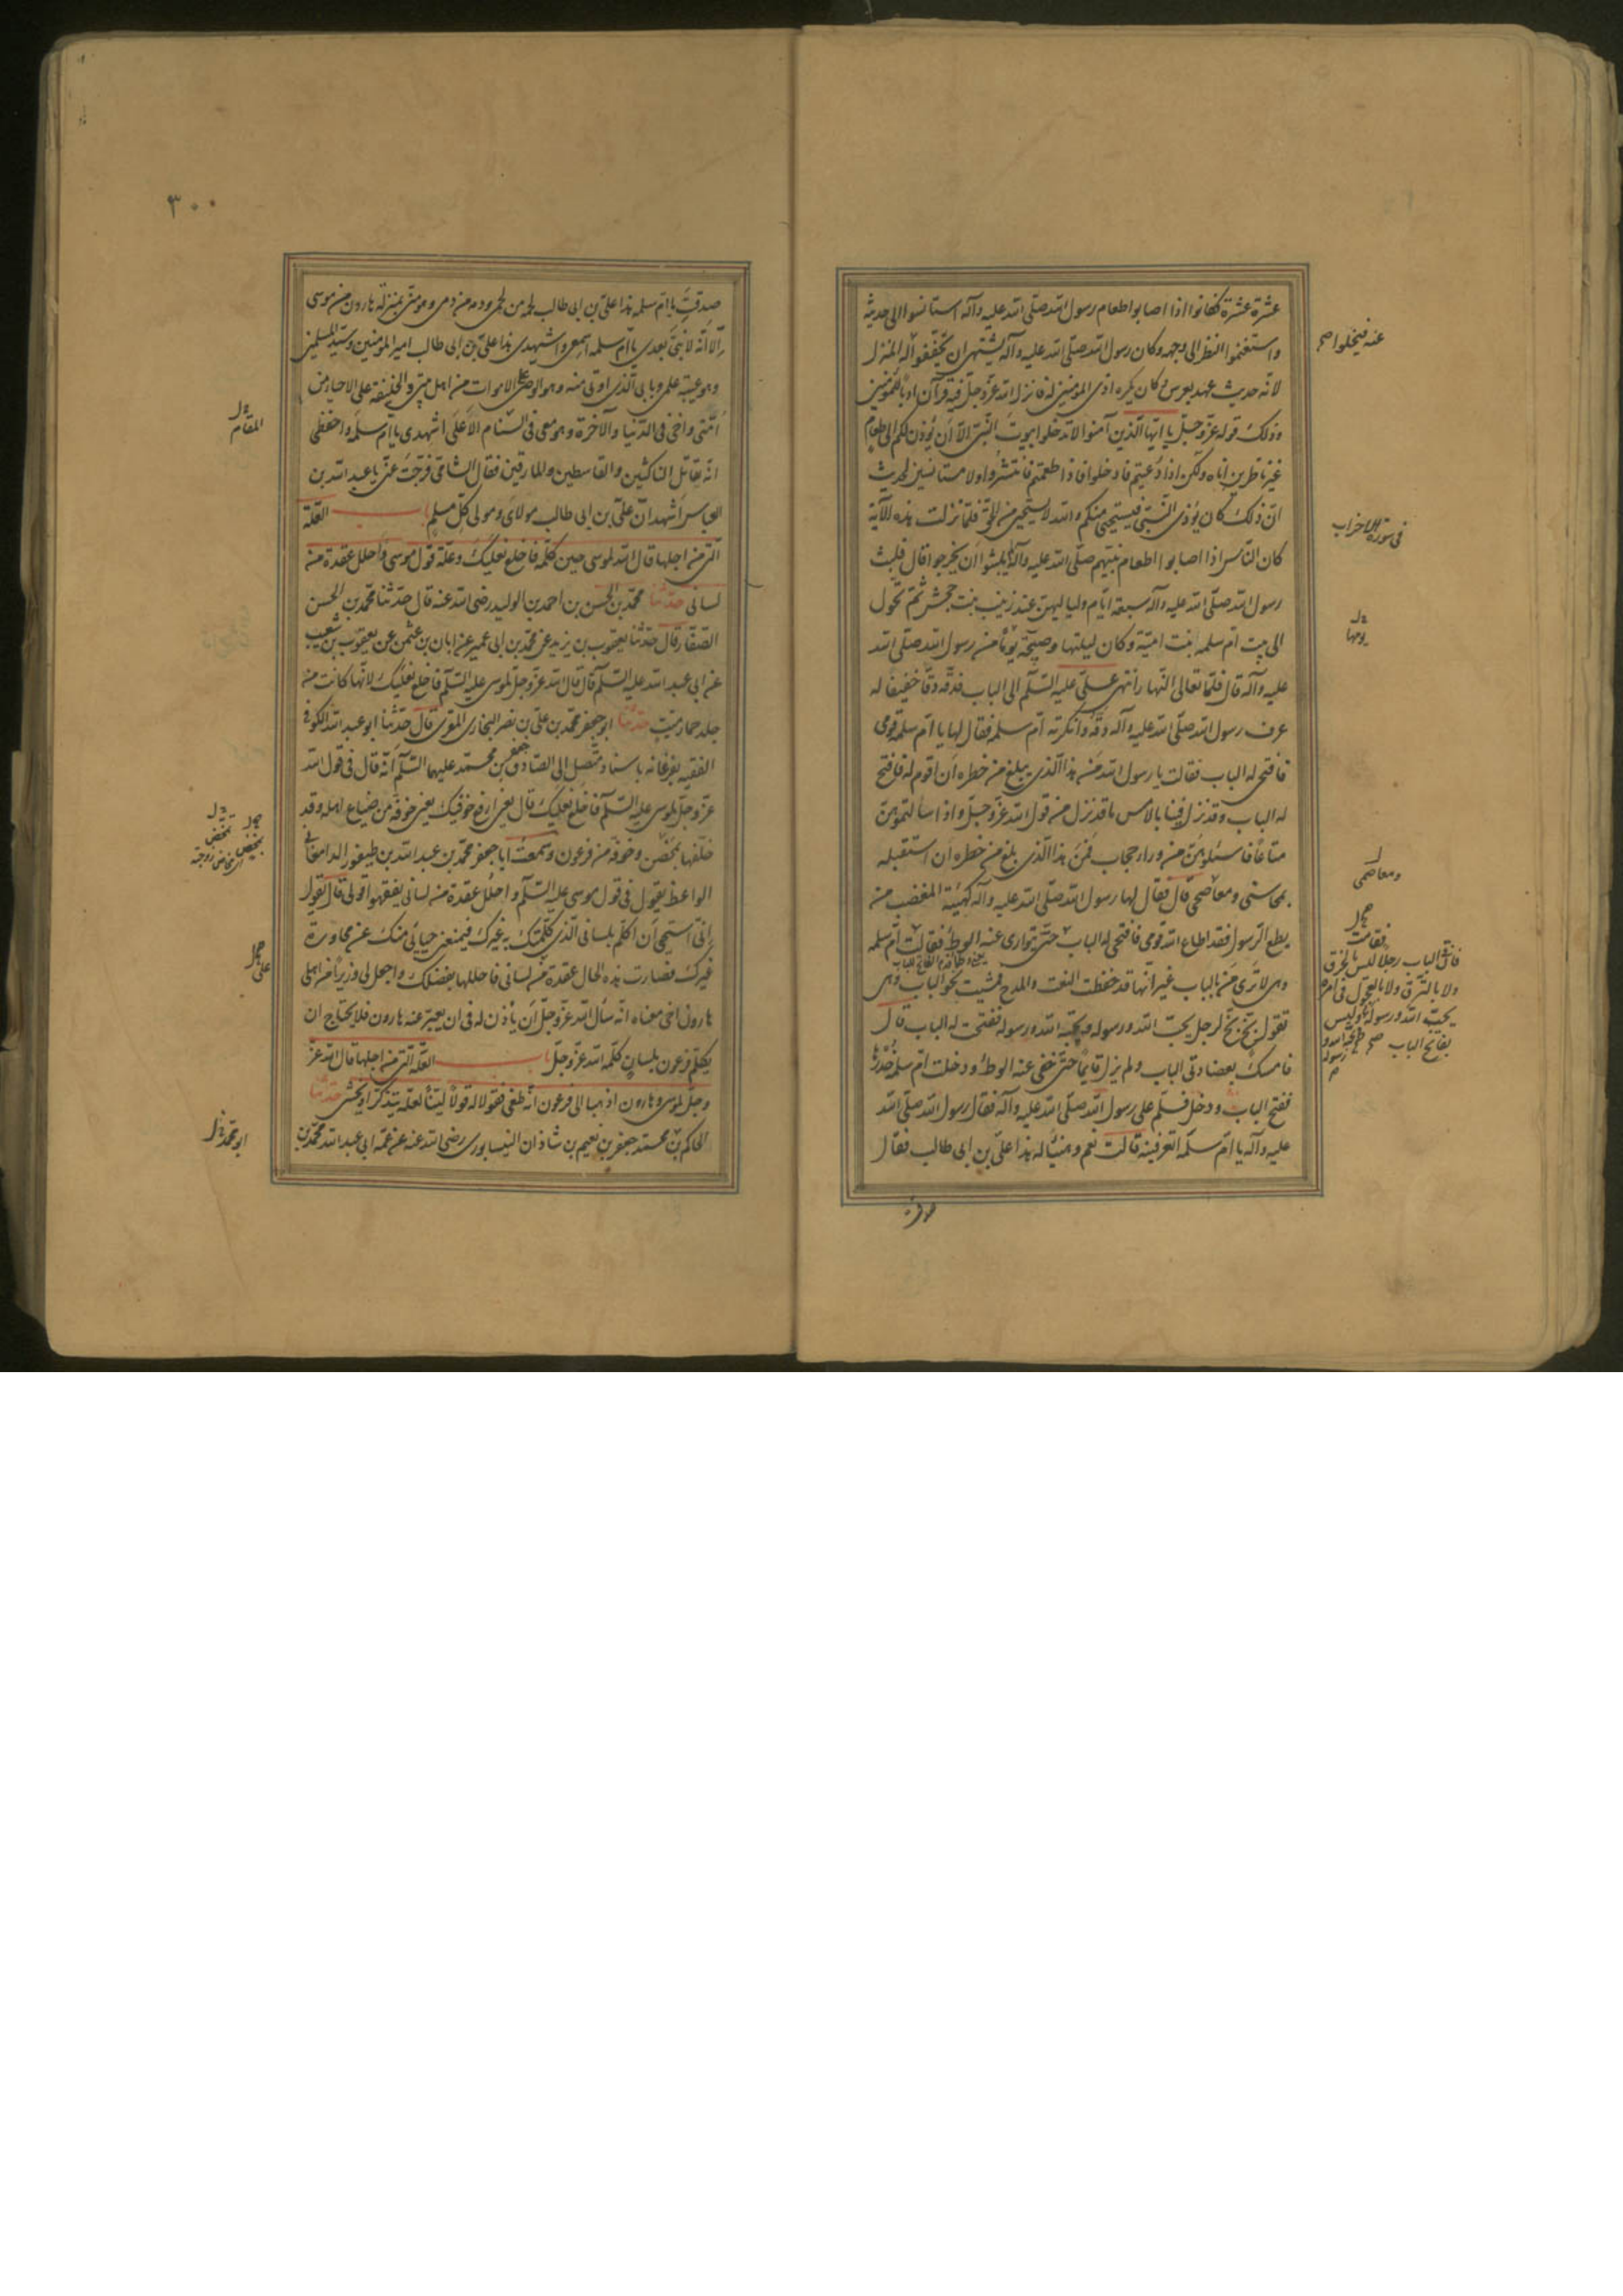 عشرة عشرة فكانوا اذا اصابوا طعام رسول الله صلّى الله عليه وآله استانسوا الى حديثه
واستغنموا النظر الى وجهه وكان رسول الله صلّى الله عليه وآله يشتهى ان يخففوا له المنزل
لانّه حديث عهد بعرس وكان يكره اذى المؤمنين له فانزل الله عزّ وجلّ فيه قرآن ادبا للمؤمنين
وذلك قوله عزّ وجلّ يا ايّها الّذين آمنوا لا تدخلوا بيوت النّبىّ الّا ان يؤذن لكم الى طعام
غير ناظرين اناه ولكن اذا دعيتم فادخلوا فاذا طعمتم فانتشروا ولا مستانسين لحديث
انّ ذلك كان يؤذى النّبىّ فيستحيى منكم والله لا يستحيى من الحقّ فلمّا نزلت هذه الآية
كان النّاس اذا اصابوا طعام نبيّهم صلّى الله عليه وآله لم يلبثوا ان يخرجوا قال فلبث
رسول الله صلّى الله عليه وآله سبعة ايّام ولياليهنّ عند زينب بنت جحش ثمّ تحوّل
الى بيت امّ سلمه بنت اميّة وكان ليلتها وصبيحة يومها من رسول الله صلّى الله
عليه وآله قال فلمّا تعالى النّهار انتهى علىّ عليه السّلم الى الباب فدقّه دقّا خفيفا له
عرف رسول الله صلّى الله عليه وآله دقّه وانكرته امّ سلمه فقال لها يا امّ سلمة قومى
فافتحى له الباب فقالت يا رسول الله من هذا الّذى يبلغ من خطره ان اقوم له فافتح
له الباب وقد نزل فينا بالامس ما قد نزل من قول الله عزّ وجلّ واذا سالتموهنّ
متاعا فاسئلوهنّ من وراء حجاب فمن هذا الّذى بلغ من خطره ان استقبله
بمحاسنى ومعاصمى قال فقال لها رسول الله صلّى الله عليه وآله كهيئة المغضب من
يطع الرّسول فقد اطاع الله قومى فافتحى له الباب حتى يتوارى عنه الوطء فقالت امّ سلمه
وهى لا ترى من بالباب غير انها قد حفظت النعت والمدح فمشت نحو الباب وهى
تقول بخّ بخّ لرجل يحبّ الله ورسوله ويحبّه الله ورسوله ففتحت له الباب قال
فامسك بعضادتى الباب ولم يزل قائما حتّى خفى عنه الوطء ودخلت امّ سلمة خدرها
ففتح الباب ودخل فسلّم على رسول الله صلّى الله عليه وآله فقال رسول الله صلّى الله
عليه وآله يا امّ سلمه اتعرفينه قالت نعم وهنيئا له هذا علىّ بن ابى طالب فقال
صدقت
عنه فيخلوا صح
فى سورة الاحزاب
يومها
ومعاصمى
فقامت
٣٠٠
صدقت يا امّ سلمه هذا علىّ بن ابى طالب لحمه من لحمى ودمه من دمى وهو منّى بمنزلة هارون من موسى
الّا انّه لا نبىّ بعدى يا امّ سلمه اسمعى واشهدى هذا علىّ بن ابى طالب امير المؤمنين وسيّد المسلمين
وهو عيبة علمى وبابى الّذى اوتى منه وهو الوصىّ على الاموات من اهل بيتى والخليفة على الاحياء من
امّتى واخى فى الدّنيا والآخرة وهو معى فى السّنام الاعلى اشهدى يا امّ سلمه واحفظى
انّه يقاتل النّاكثين والقاسطين والمارقين فقال الشّامى فرّجت عنّى يا عبد الله بن
العباس اشهد انّ علىّ بن ابى طالب مولاى ومولى كلّ مسلم باب العلّة
الّتى من اجلها قال الله لموسى حين كلّمه فاخلع نعليك وعلّة قول موسى واحلل عقدة من
لسانى حدّثنا محمّد بن الحسن بن احمد بن الوليد رضى الله عنه قال حدّثنا محمّد بن الحسن
الصّفّار قال حدّثنا يعقوب بن يزيد عن محمّد بن ابى عمير عن ابان بن عثمن عن يعقوب بن شعيب
عن ابى عبد الله عليه السّلم قال قال الله عزّ وجلّ لموسى عليه السّلم فاخلع نعليك لانّها كانت من
جلد حمار ميّت حدّثنا ابو جعفر محمّد بن علىّ بن نصر البخارى المقرى قال حدّثنا ابو عبد الله الكوفى
الفقيه بفرغانه باسناد متّصل الى الصّادق جعفر بن محمّد عليهما السّلم انّه قال فى قول الله
عزّ وجلّ لموسى عليه السّلم فاخلع نعليك قال يعنى ارفع خوفيك يعنى خوفه من ضياع اهله وقد
خلّفها تمخض وخوفه من فرعون وسمعت ابا جعفر محمّد بن عبد الله بن طيفور الدامغانى
الواعظ يقول فى قول موسى عليه السّلم واحلل عقدة من لسانى يفقهوا قولى قال يقول
انّى استحيى ان اكلّم بلسانى الّذى كلّمتك به غيرك فيمنعنى حيائى منك عن محاورة
غيرك فصارت هذه الحال عقدة من لسانى فاحللها بفضلك واجعل لى وزيرا من اهلى
هارون اخى معناه انّه سأل الله عزّ وجلّ ان يأذن له فى ان يعبّر عنه هارون فلا يحتاج ان
يكلّم فرعون بلسان كلّم الله عزّ وجلّ باب العلّة الّتى من اجلها قال الله عزّ
وجلّ لموسى وهارون اذهبا الى فرعون انّه طغى فقولا له قولا ليّنا لعلّه يتذكّر او يخشى حدّثنا
الحاكم بن محمّد جعفر بن نعيم بن شاذان النيسابورى رضى الله عنه عن عمّه ابى عبد الله محمّد بن
المقام
على
ابو محمّد